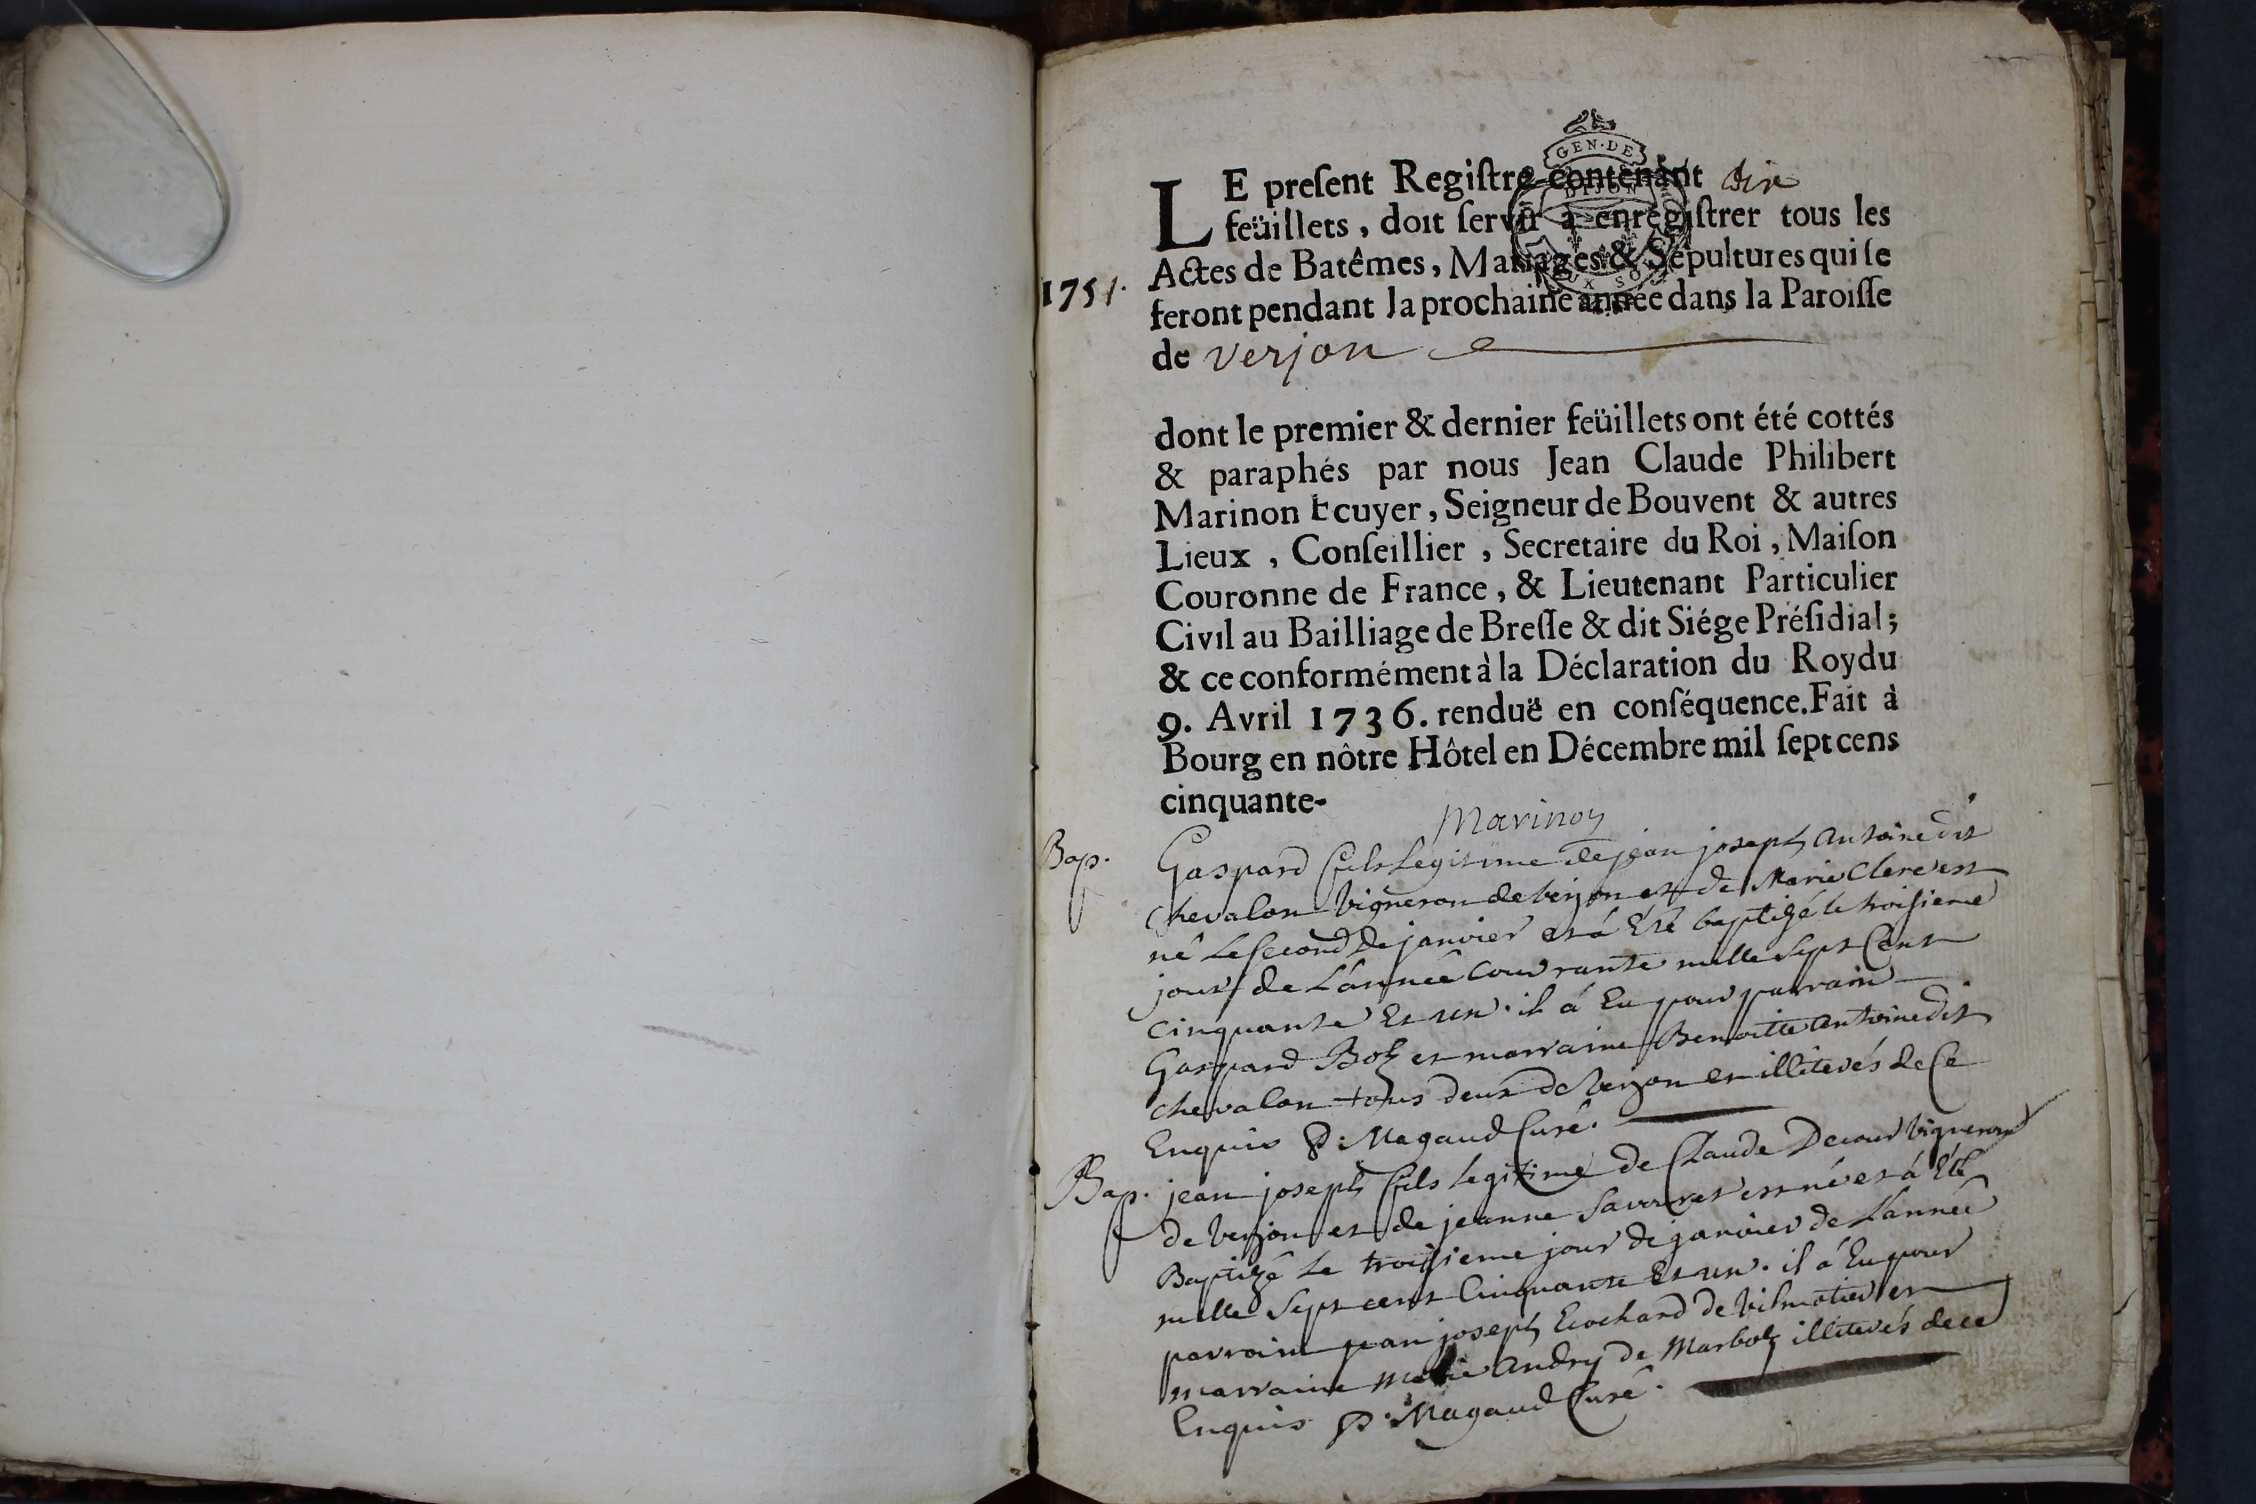 GEN·DE
DIJON
LE preſent Regiſtre contenant dix
feüillets, doit ſervir à enregiſtrer tous les
Actes de Batêmes, Mariages & Sépultures qui ſe
1751.
feront pendant la prochaine année dans la Paroiſſe
de verjon
dont le premier & dernier feüillets ont été cottés
& paraphés par nous Jean Claude Philibert
Marinon Ecuyer, Seigneur de Bouvent & autres
Lieux, Conſeillier, Secretaire du Roi, Maiſon
Couronne de France, & Lieutenant Particulier
Civil au Bailliage de Breſſe & dit Siége Préſidial;
& ce conformément à la Déclaration du Roy du
9. Avril 1736. renduë en conſéquence. Fait à
Bourg en nôtre Hôtel en Décembre mil ſept cens
cinquante-
Marinon
Bap.
Gaspard fils legitime de jean joseph antoine dit
chevalon vigneron de verjon et de Marie Clerc est
né le second de janvier et á Eté baptizé le troisieme
jour de L'année courrante mille sept cent
cinquante Et un. il á Eu pour parrain
Gaspard Boz et marraine Benoitte antoine dit
chevalon tous deux de verjon et illiterés de ce
Enquis P: Magaud Curé.
Bap.
jean joseph fils legitime de Claude Decour vigneron
de verjon et de jeanne Savouret est né et á Eté
Baptizé le troisieme jour de janvier de L'année
mille sept cent cinquante Et un. il á Eu pour
parrain jean joseph Ecochard de vilmotier et
marraine Marie andry de Marboz illiterés de ce
Enquis P: Magaud Curé.